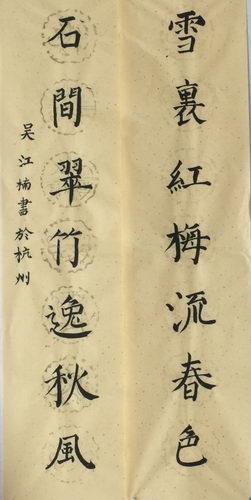 雪裏紅梅流春色
石間翠竹逸秋風
吴江楠書於杭州